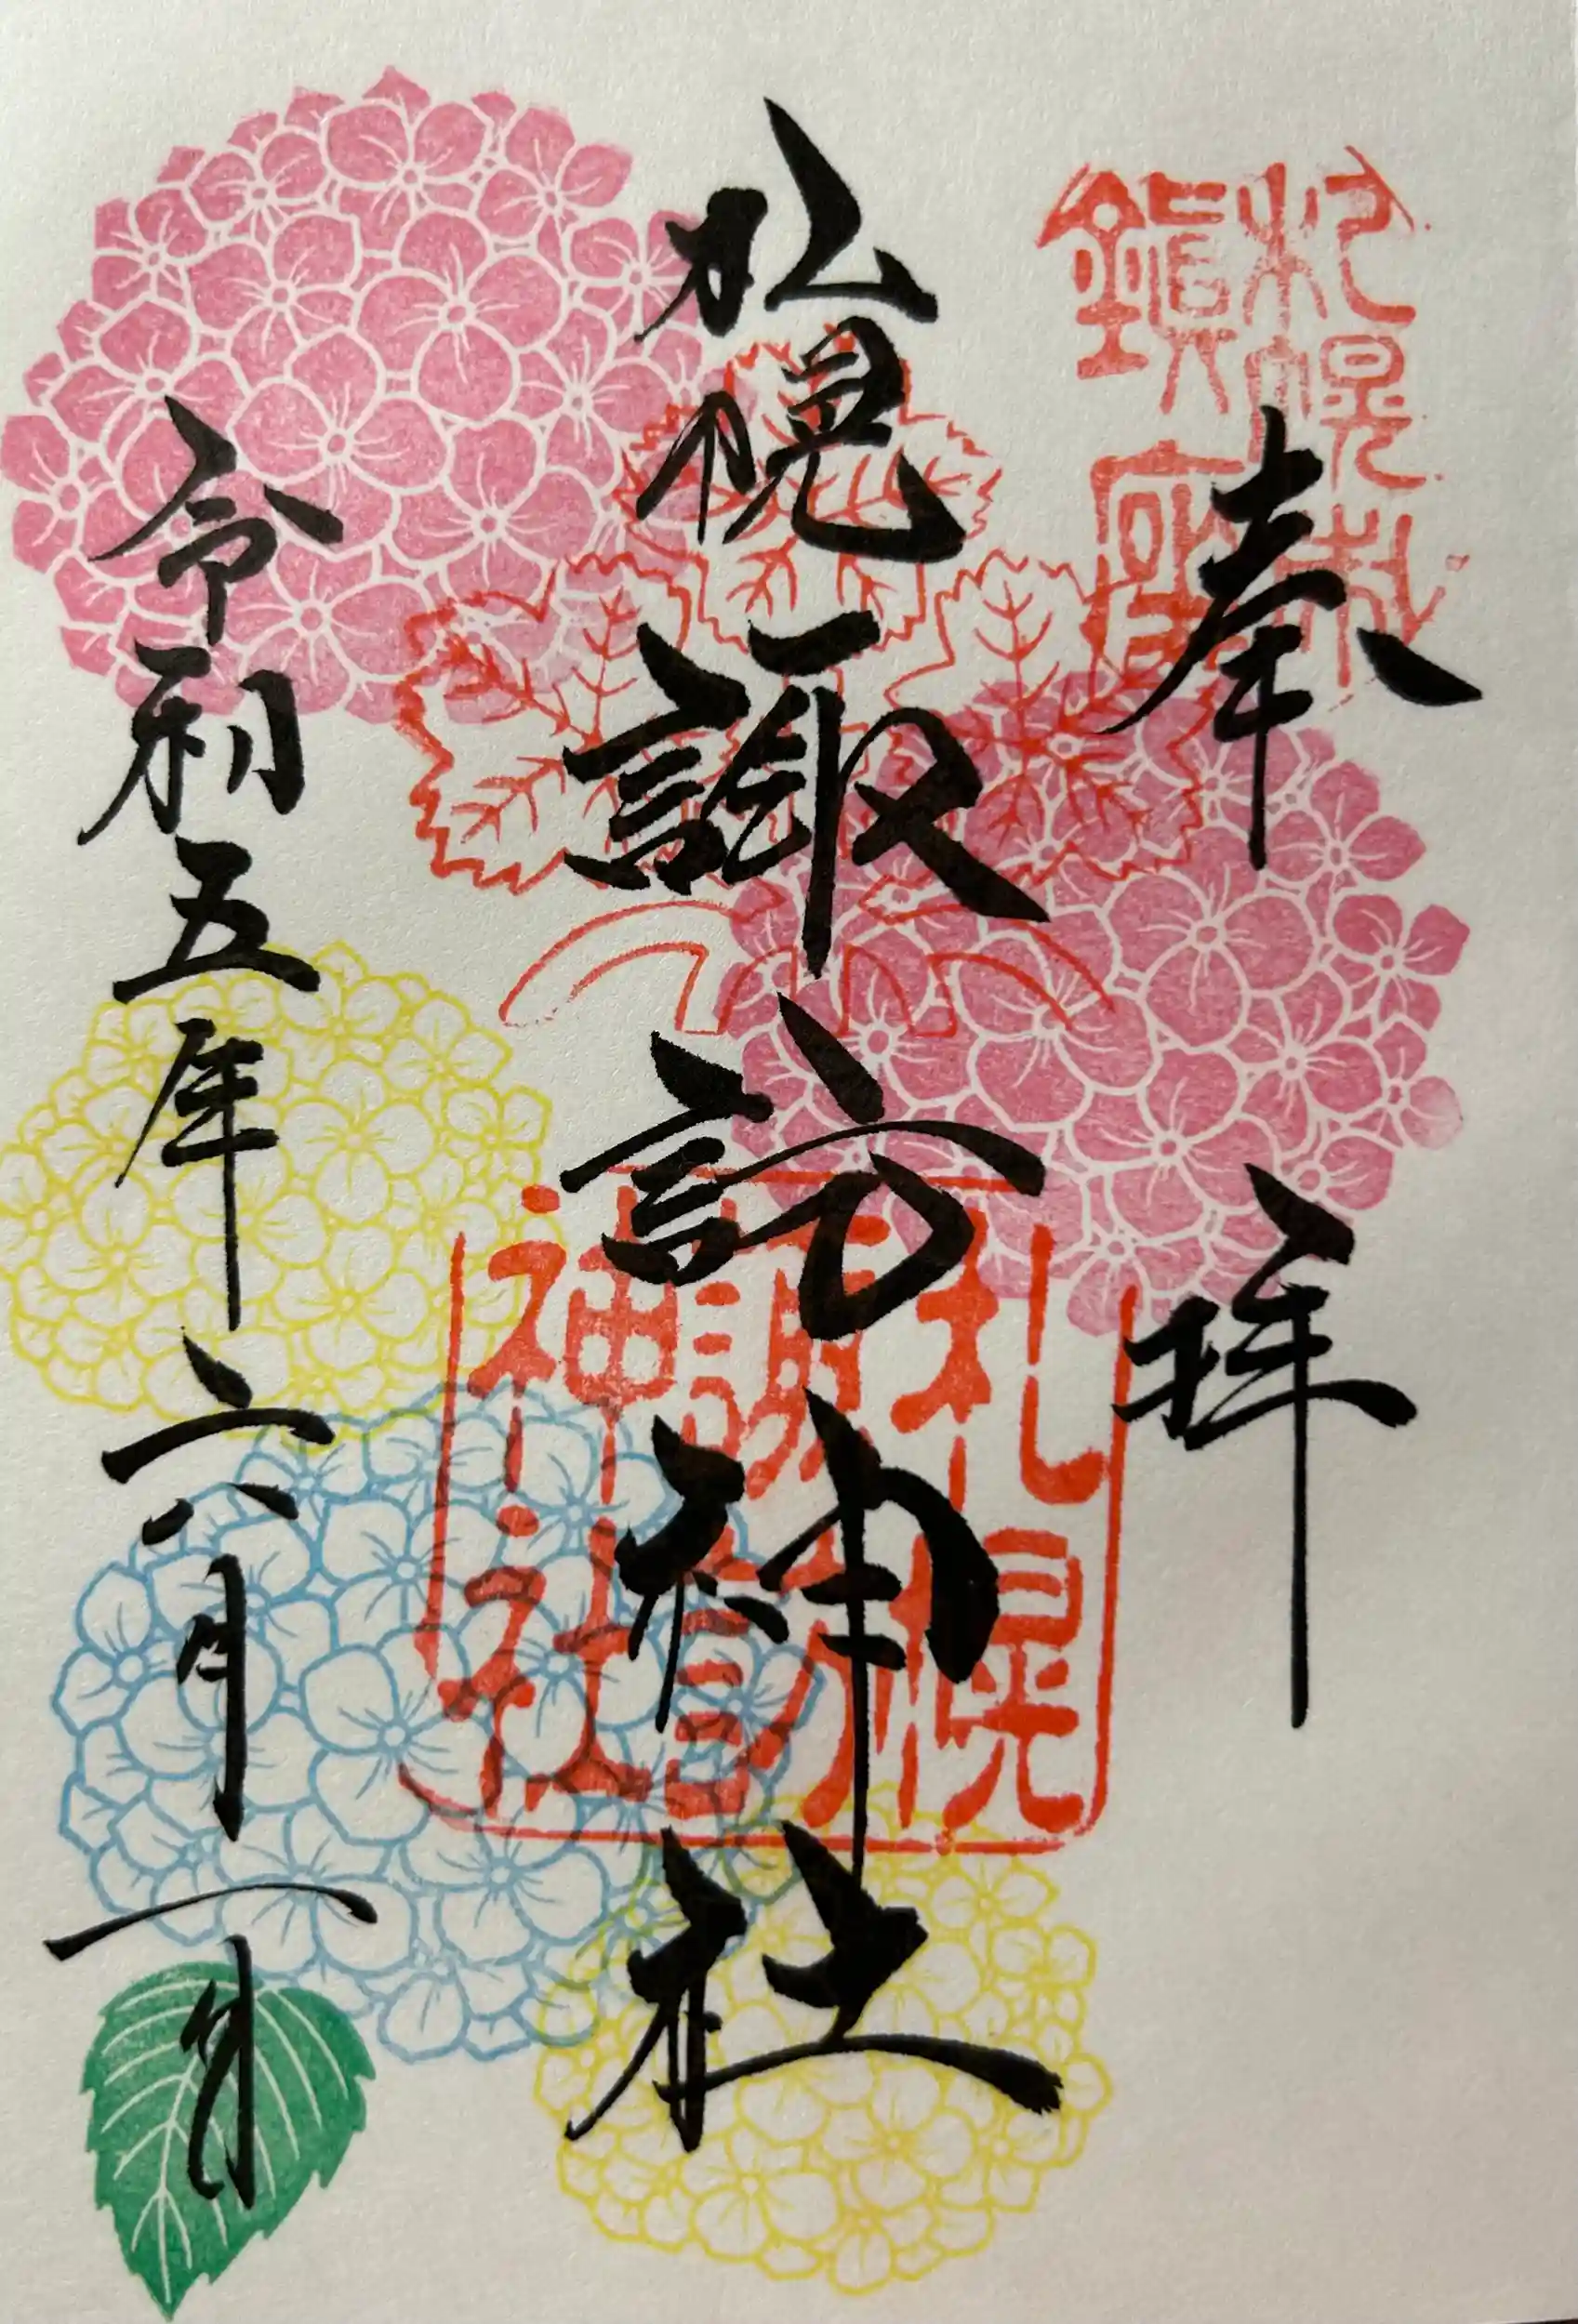 札幌
鎮
奉拝
札幌諏訪神社
札幌
諏訪
神社
令和五年六月一日